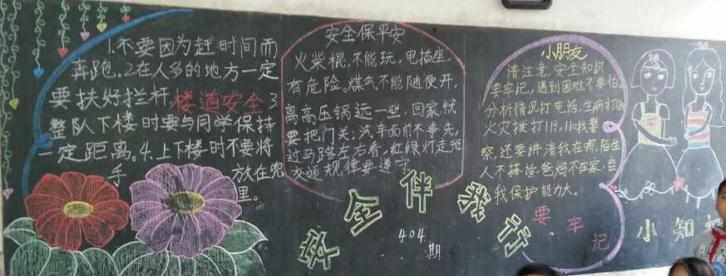 1.不要因为赶时间而
奔跑。2在人多的地方一定
要扶好拦杆 楼道安全 3
整队下楼时要与同学保持
一定距离。4.上下楼时不要将
手 放在兜
里。
安全保平安
火柴棍,不能玩,电插座,
有危险。煤气不能随便开,
离高压锅远一些,回家就
要把门关;汽车面前不争先,
过马路左右看,红绿灯走
交通规律要遵守
小朋友
请注意,安全知识
牢牢记,遇到困难不要怕,
分析情况打电话,生病打
火灾拨打119,110找警
察,还要讲清我在哪,陌生
人不
我保护能力大。
要牢记
安全伴我行
404
期
小知